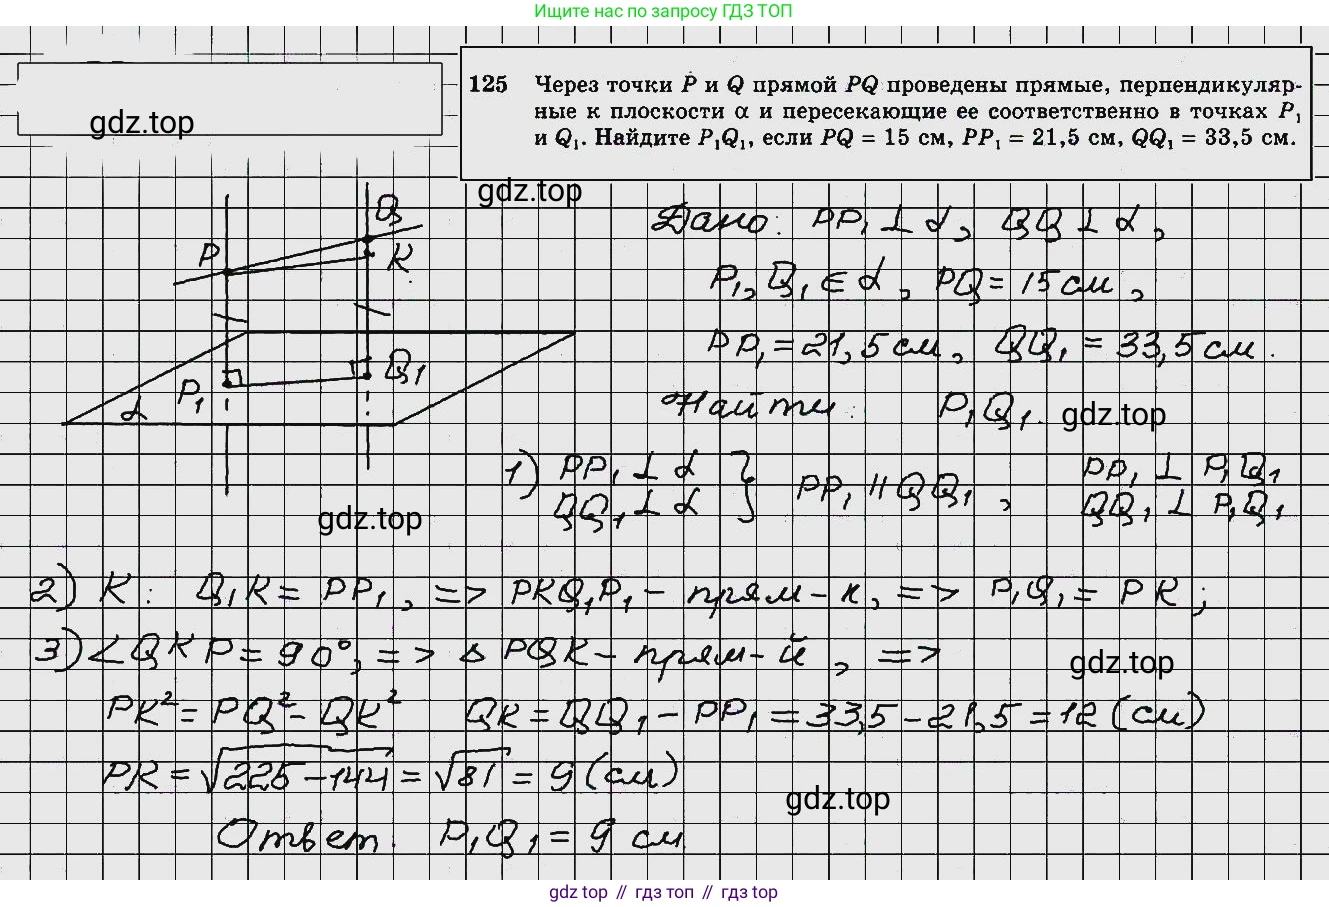 Ищите нас по запросу ГДЗ ТОП
gdz.top
125 Через точки P и Q прямой PQ проведены прямые, перпендикуляр-
ные к плоскости α и пересекающие ее соответственно в точках P₁
и Q₁. Найдите P₁Q₁, если PQ = 15 см, PP₁ = 21,5 см, QQ₁ = 33,5 см.
gdz.top
Q
P
K
P₁
Q₁
α
Дано: PP₁ ⊥ α, QQ ⊥ α,
P₁, Q₁ ∈ α, PQ = 15 см,
PP₁ = 21,5 см, QQ₁ = 33,5 см.
Найти: P₁Q₁.
gdz.top
1) PP₁ ⊥ α
QQ₁ ⊥ α } PP₁ || QQ₁, PP₁ ⊥ P₁Q₁
QQ₁ ⊥ P₁Q₁
gdz.top
2) K: Q₁K = PP₁, => PKQ₁P₁ - прям-к, => P₁Q₁ = PK;
3) ∠QKP = 90°, => △PQK - прям-й, =>
gdz.top
PK² = PQ² - QK² QK = QQ₁ - PP₁ = 33,5 - 21,5 = 12 (см)
PK = √225 - 144 = √81 = 9 (см)
gdz.top
Ответ: P₁Q₁ = 9 см
gdz top // гдз топ // gdz top